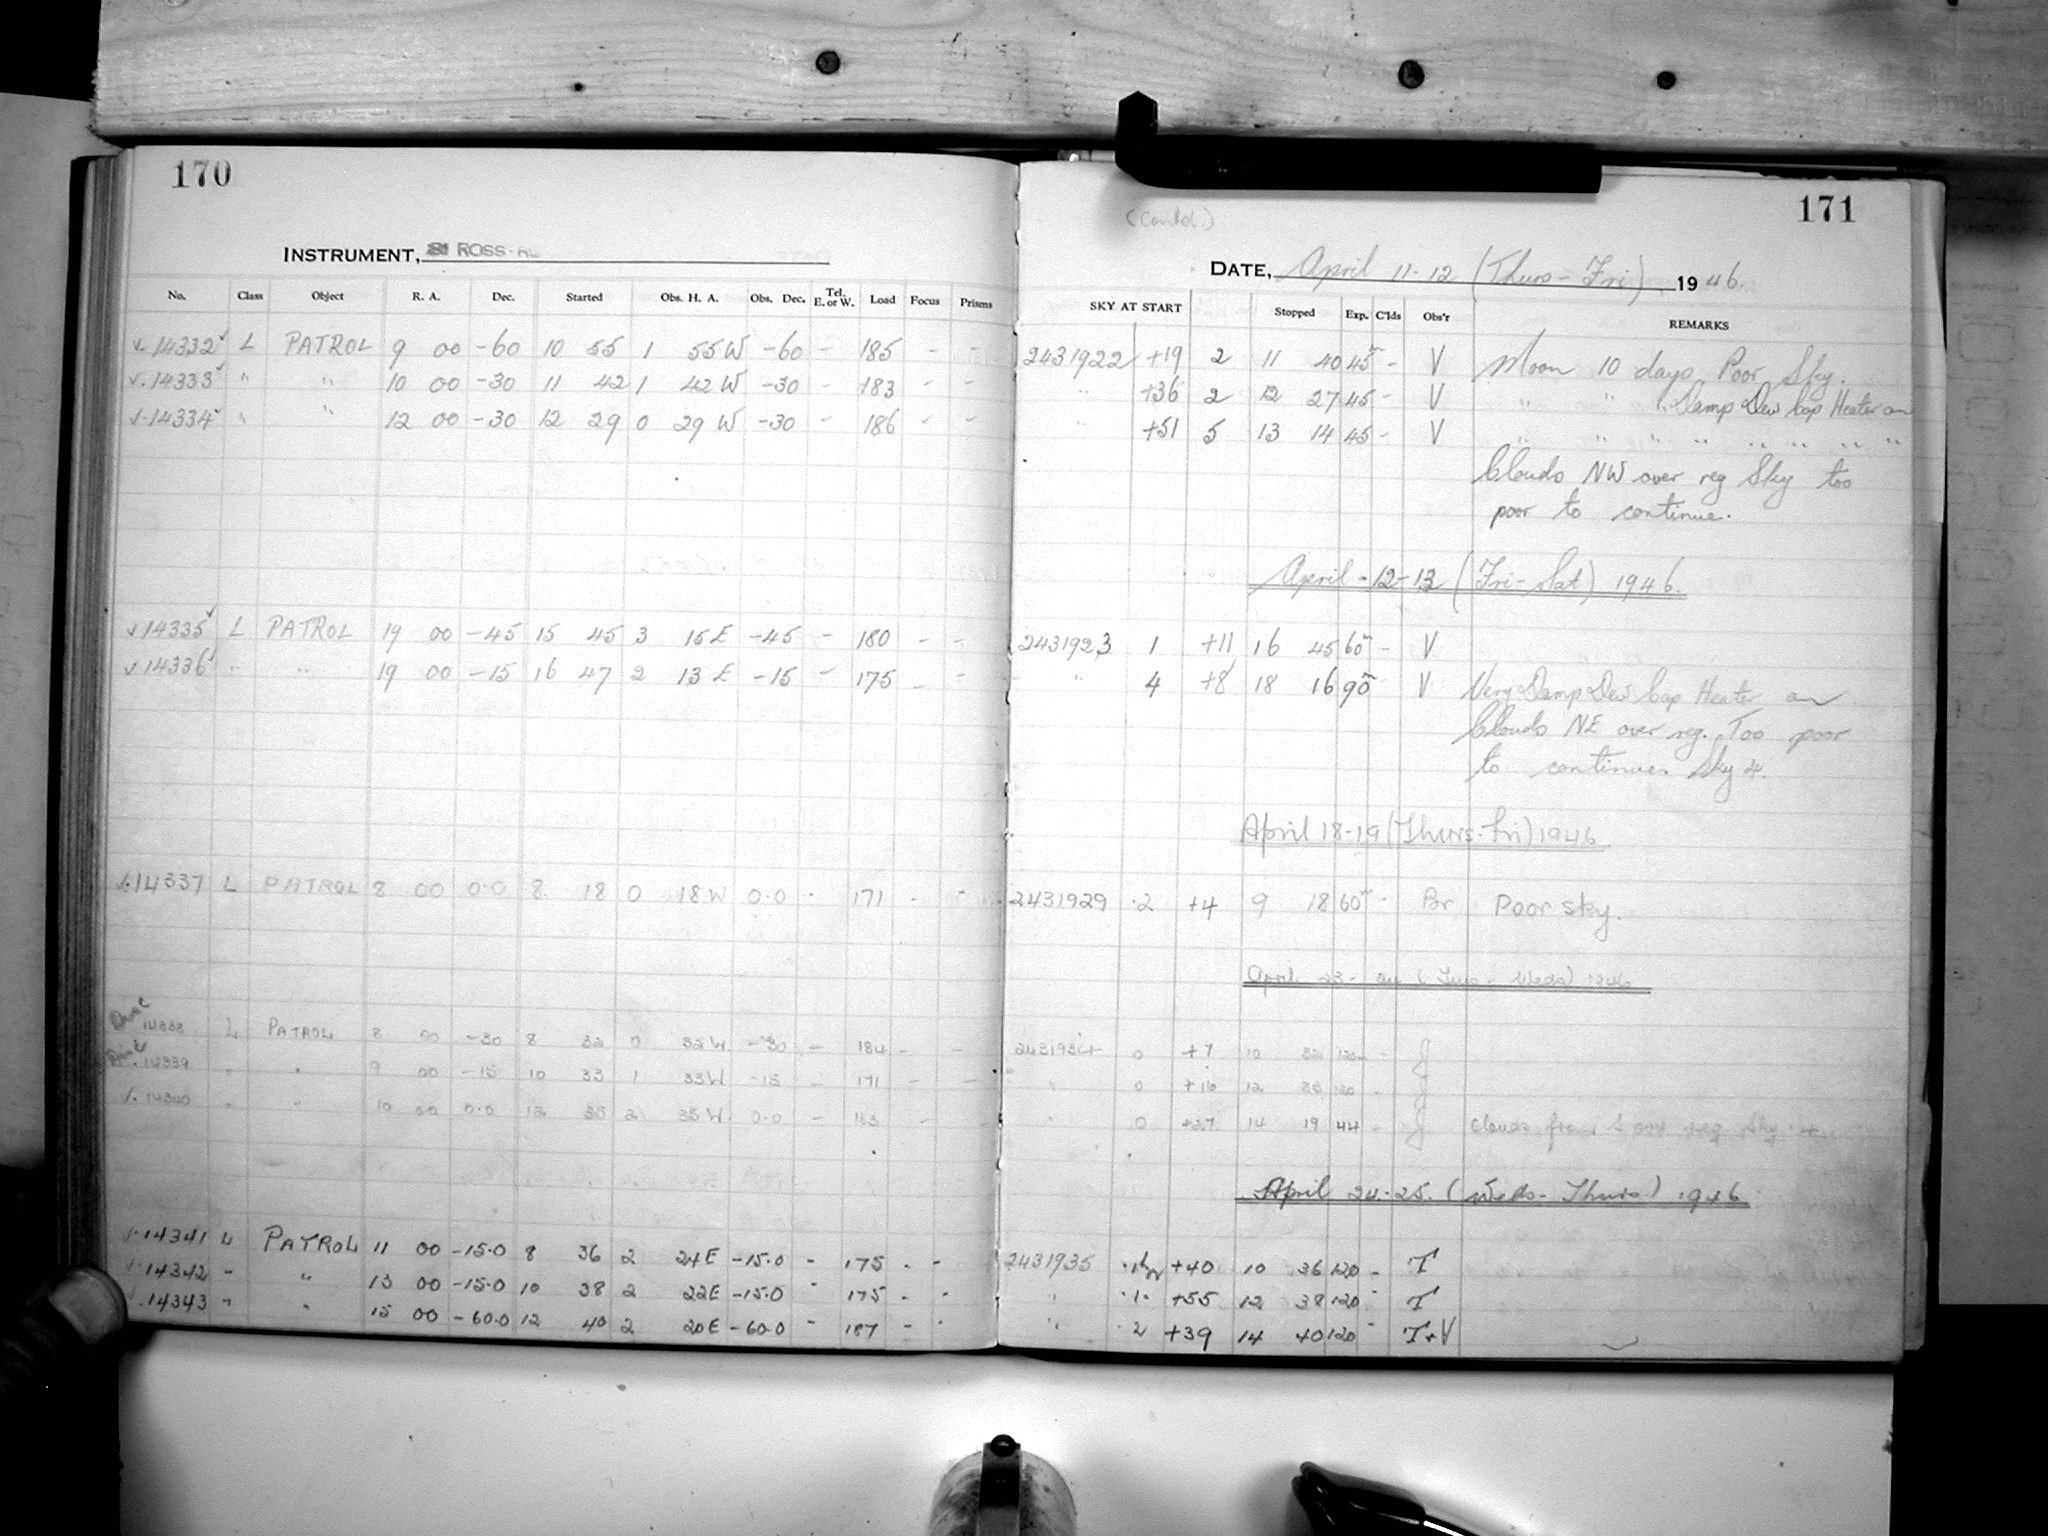 170
INSTRUMENT, ROSS
No. Class Object R. A. Dec. Started Obs. H. A. Obs. Dec. Tel. E. or W. Load Focus Prisms
14332 L PATROL 9 00 -60 10 55 1 55W -60 - 185 - -
14333 " " 10 00 -30 11 42 1 42W -30 - 183 - -
14334 " " 12 00 -30 12 29 0 29W -30 - 186 - -
14335 L PATROL 19 00 -45 15 45 3 15E -45 - 180 - -
14336 " " 19 00 -15 16 47 2 13E -15 - 175 - -
14337 L PATROL 8 00 0.0 8 18 0 18W 0.0 - 171 -
14338 L PATROL 8 00 -30 8 32 0 32W -30 - 184 - -
14339 " " 9 00 -15 10 33 1 33W -15 - 171 - -
14340 " " 10 00 0.0 12 35 2 35W 0.0 - 183 - -
14341 L PATROL 11 00 -15.0 8 36 2 24E -15.0 - 175 - -
14342 " " 13 00 -15.0 10 38 2 22E -15.0 - 175 - -
14343 " " 15 00 -60.0 12 40 2 20E -60.0 - 187 - -
171
(Contd.)
DATE, April 11-12 (Thurs-Fri) 1946.
SKY AT START Stopped Exp. C'lds Obs'r REMARKS
2431922 +19 2 11 40 45m - V Moon 10 days Poor Sky.
" +36 2 12 27 45 - V " " " Damp Dew Cap Heater on
" +51 5 13 14 45 - V " " " " " " " "
Clouds NW over reg Sky too
poor to continue.
April -12-13 (Fri-Sat) 1946.
2431923 1 +11 16 45 60m - V
" 4 +8 18 16 90m V Very Damp Dew Cap Heater on
Clouds NE over reg. Too poor
to continue. Sky 4.
April 18-19 (Thurs-Fri) 1946
2431929 2 +4 9 18 60m - Br Poor sky.
April 23-24 (Tues-Weds) 1946
2431934 0 +7 10 32 120 - J
" 0 +16 12 33 120 - J
" 0 +27 14 19 44 - J Clouds from S over reg. Sky 4.
April 24-25. (Weds-Thurs) 1946
2431935 +40 10 36 120 - T
" 1 +55 12 38 120 - T
" 2 +39 14 40 120 - T+V